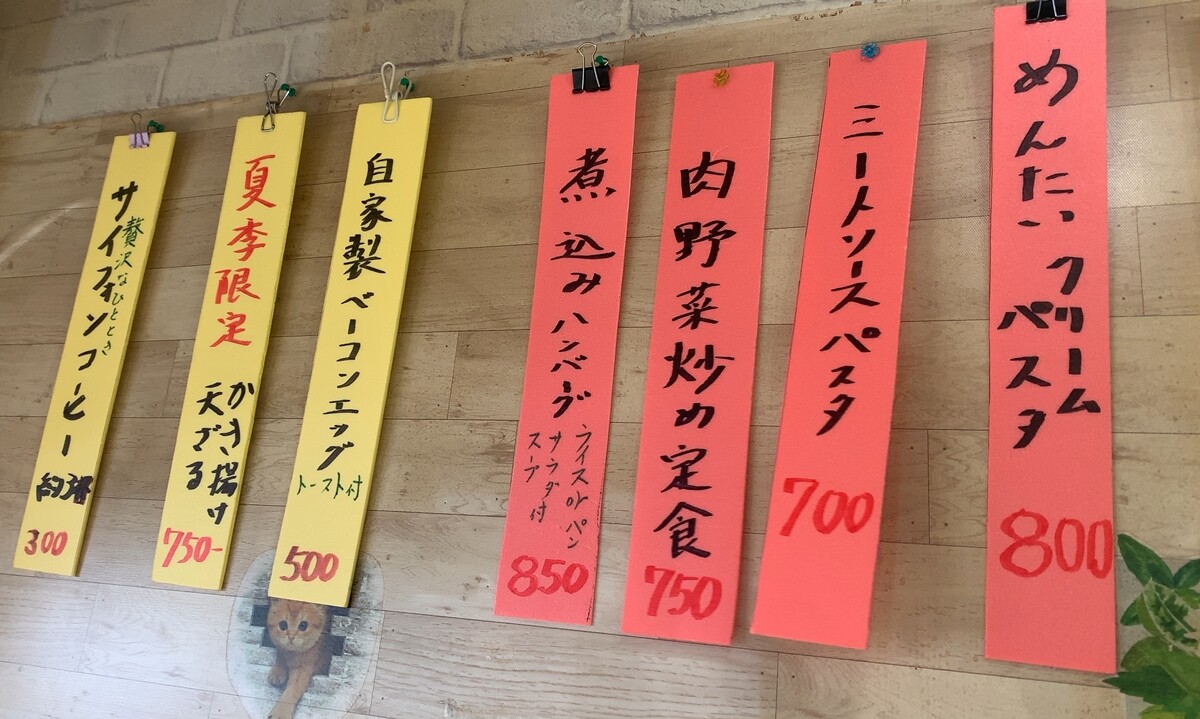 めんたいクリーム
パスタ
800
ミートソースパスタ
700
肉野菜炒め定食
750
煮込みハンバーグ
ライスorパン
サラダ付
スープ
850
自家製ベーコンエッグ
トースト付
500
夏季限定
かき揚げ
天ざる
750-
贅沢なひととき
サイフォンコーヒー
300